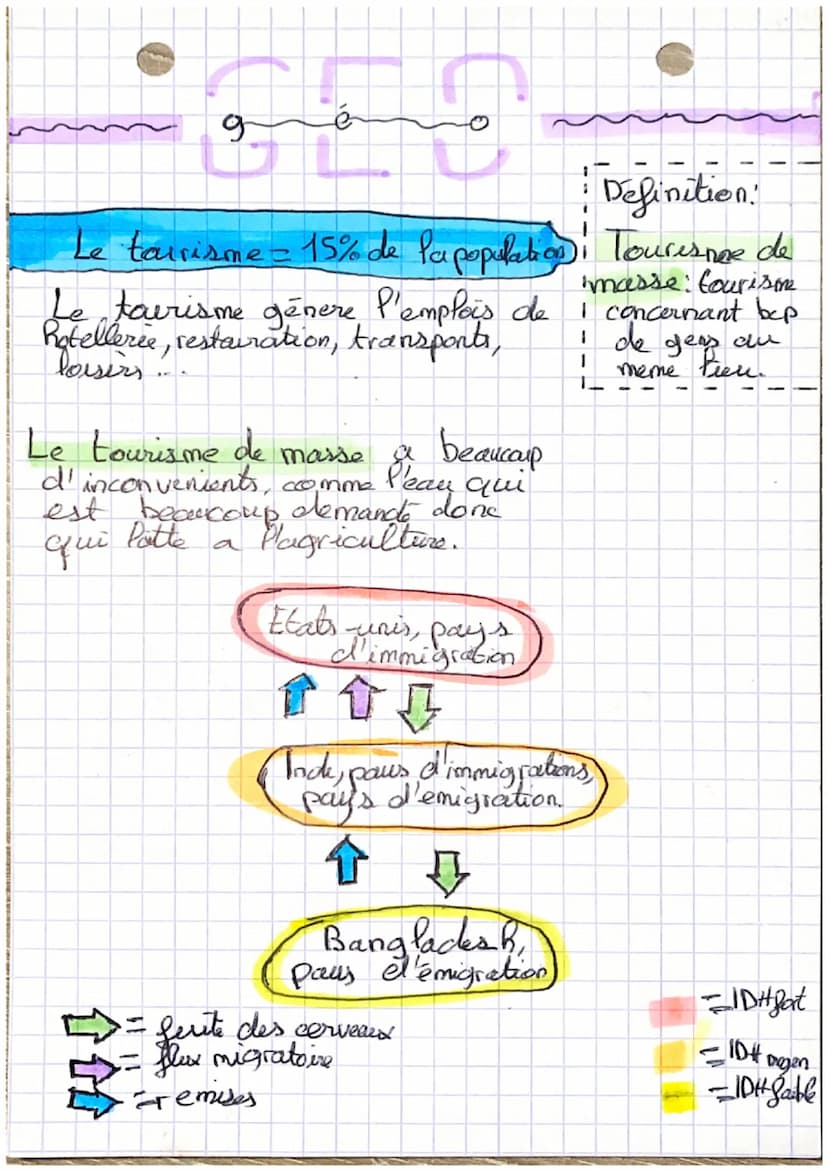 GEO
géo
Le tourisme = 15% de la population
Définition:
Tourisme de
masse: tourisme
concernant bcp
de gens au
meme lieu.
Le tourisme génere l'emplois de
hotellerie, restauration, transports,
loisirs ...
Le tourisme de masse a beaucoup
d'inconvenients, comme l'eau qui
est beaucoup demandé donc
qui lutte a l'agriculture.
Etats-unis, pays
d'immigration
Inde, pays d'immigrations,
pays d'emigration.
Bangladesh,
pays d'émigration
= fuite des cerveaux
= flux migratoire
= remises
= IDH fort
= IDH moyen
= IDH faible